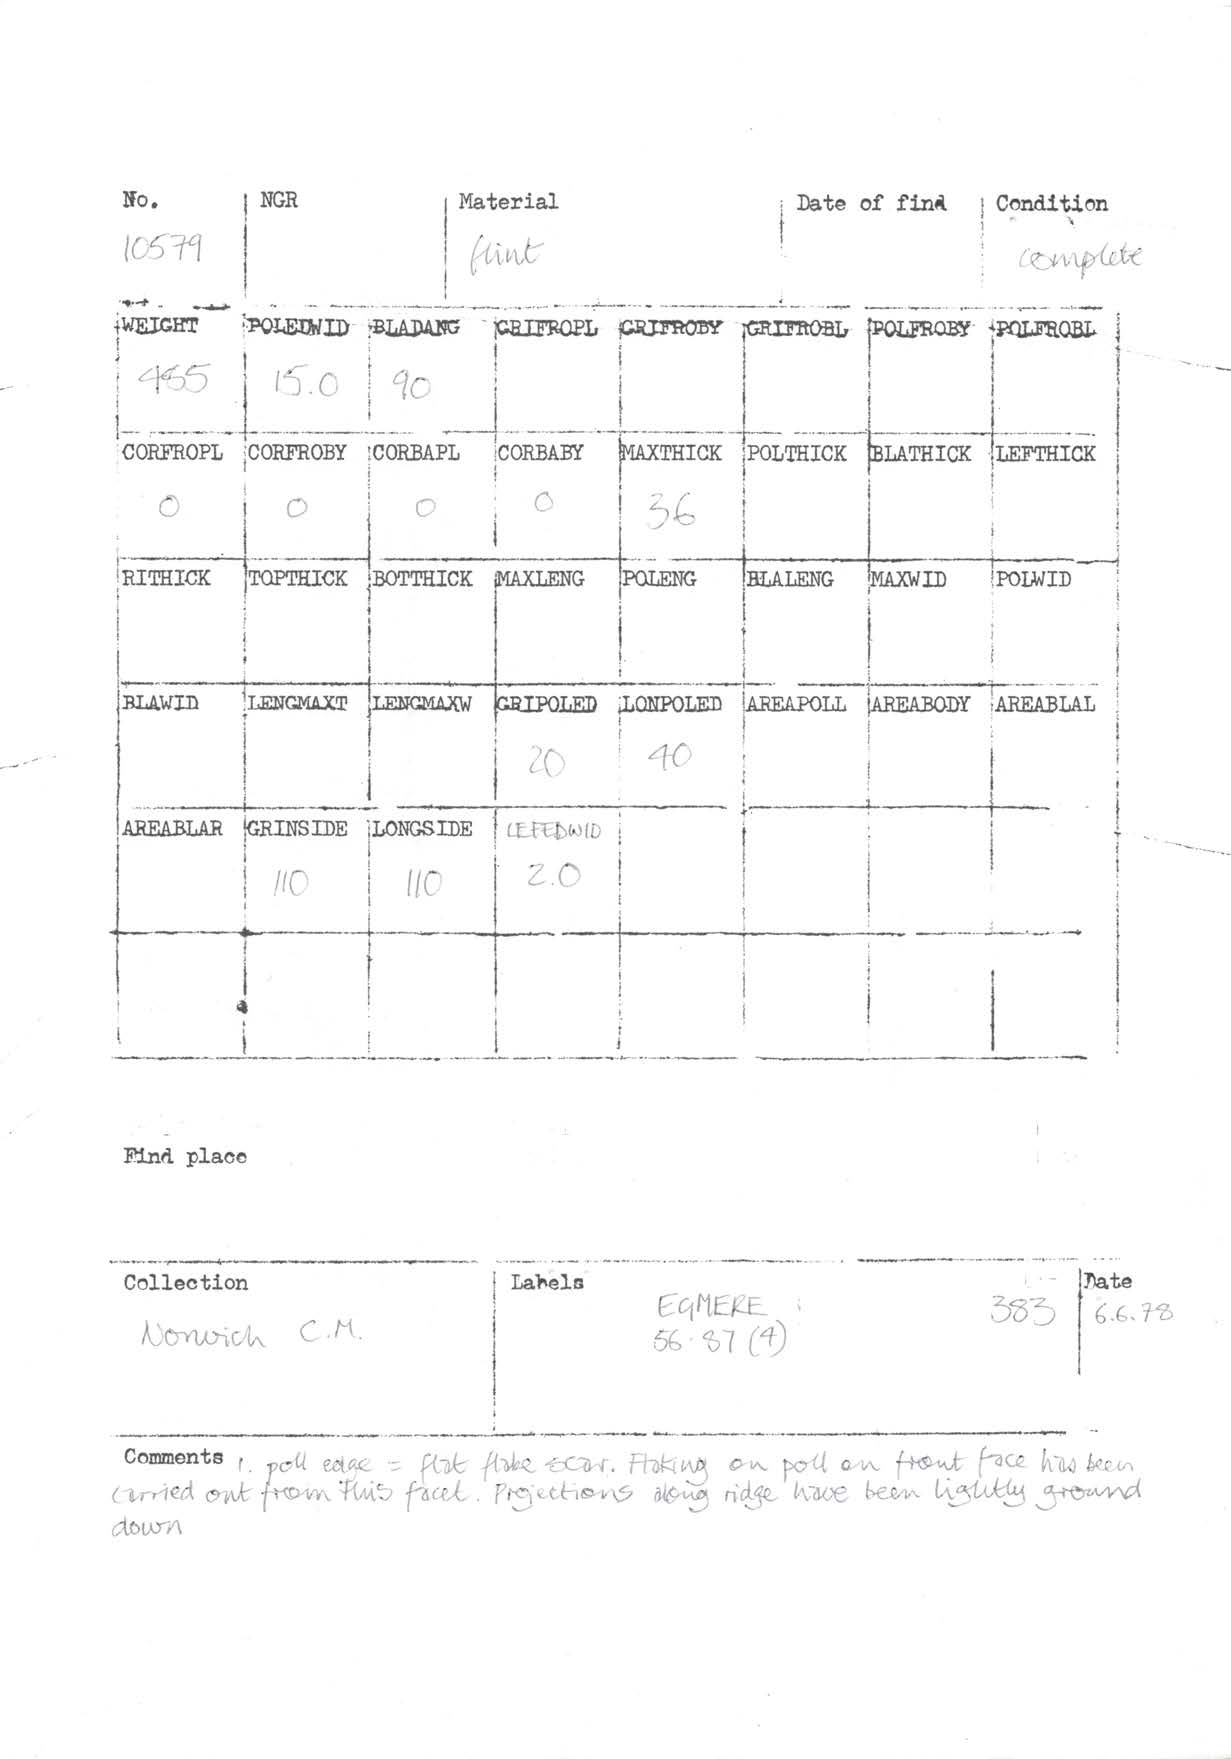 No. NGR Material Date of find Condition
10579 flint complete
WEIGHT POLEDWID BLADANG GRIFROPL GRIFROBY GRIFROBL POLFROBY POLFROBL
455 15.0 90
CORFROPL CORFROBY CORBAPL CORBABY MAXTHICK POLTHICK BLATHICK LEFTHICK
0 0 0 0 36
RITHICK TOPTHICK BOTTHICK MAXLENG POLENG BLALENG MAXWID POLWID
BLAWID LENGMAXT LENGMAXW GRIPOLED LONPOLED AREAPOLL AREABODY AREABLAL
20 40
AREABLAR GRINSIDE LONGSIDE LEFEDWID
110 110 2.0
Find place
Collection Labels Date
Norwich C.M. EGMERE 383 6.6.78
56.87 (4)
Comments 1. poll edge = flat flake scar. Flaking on poll on front face has been
carried out from this facet. Projections along ridge have been lightly ground
down